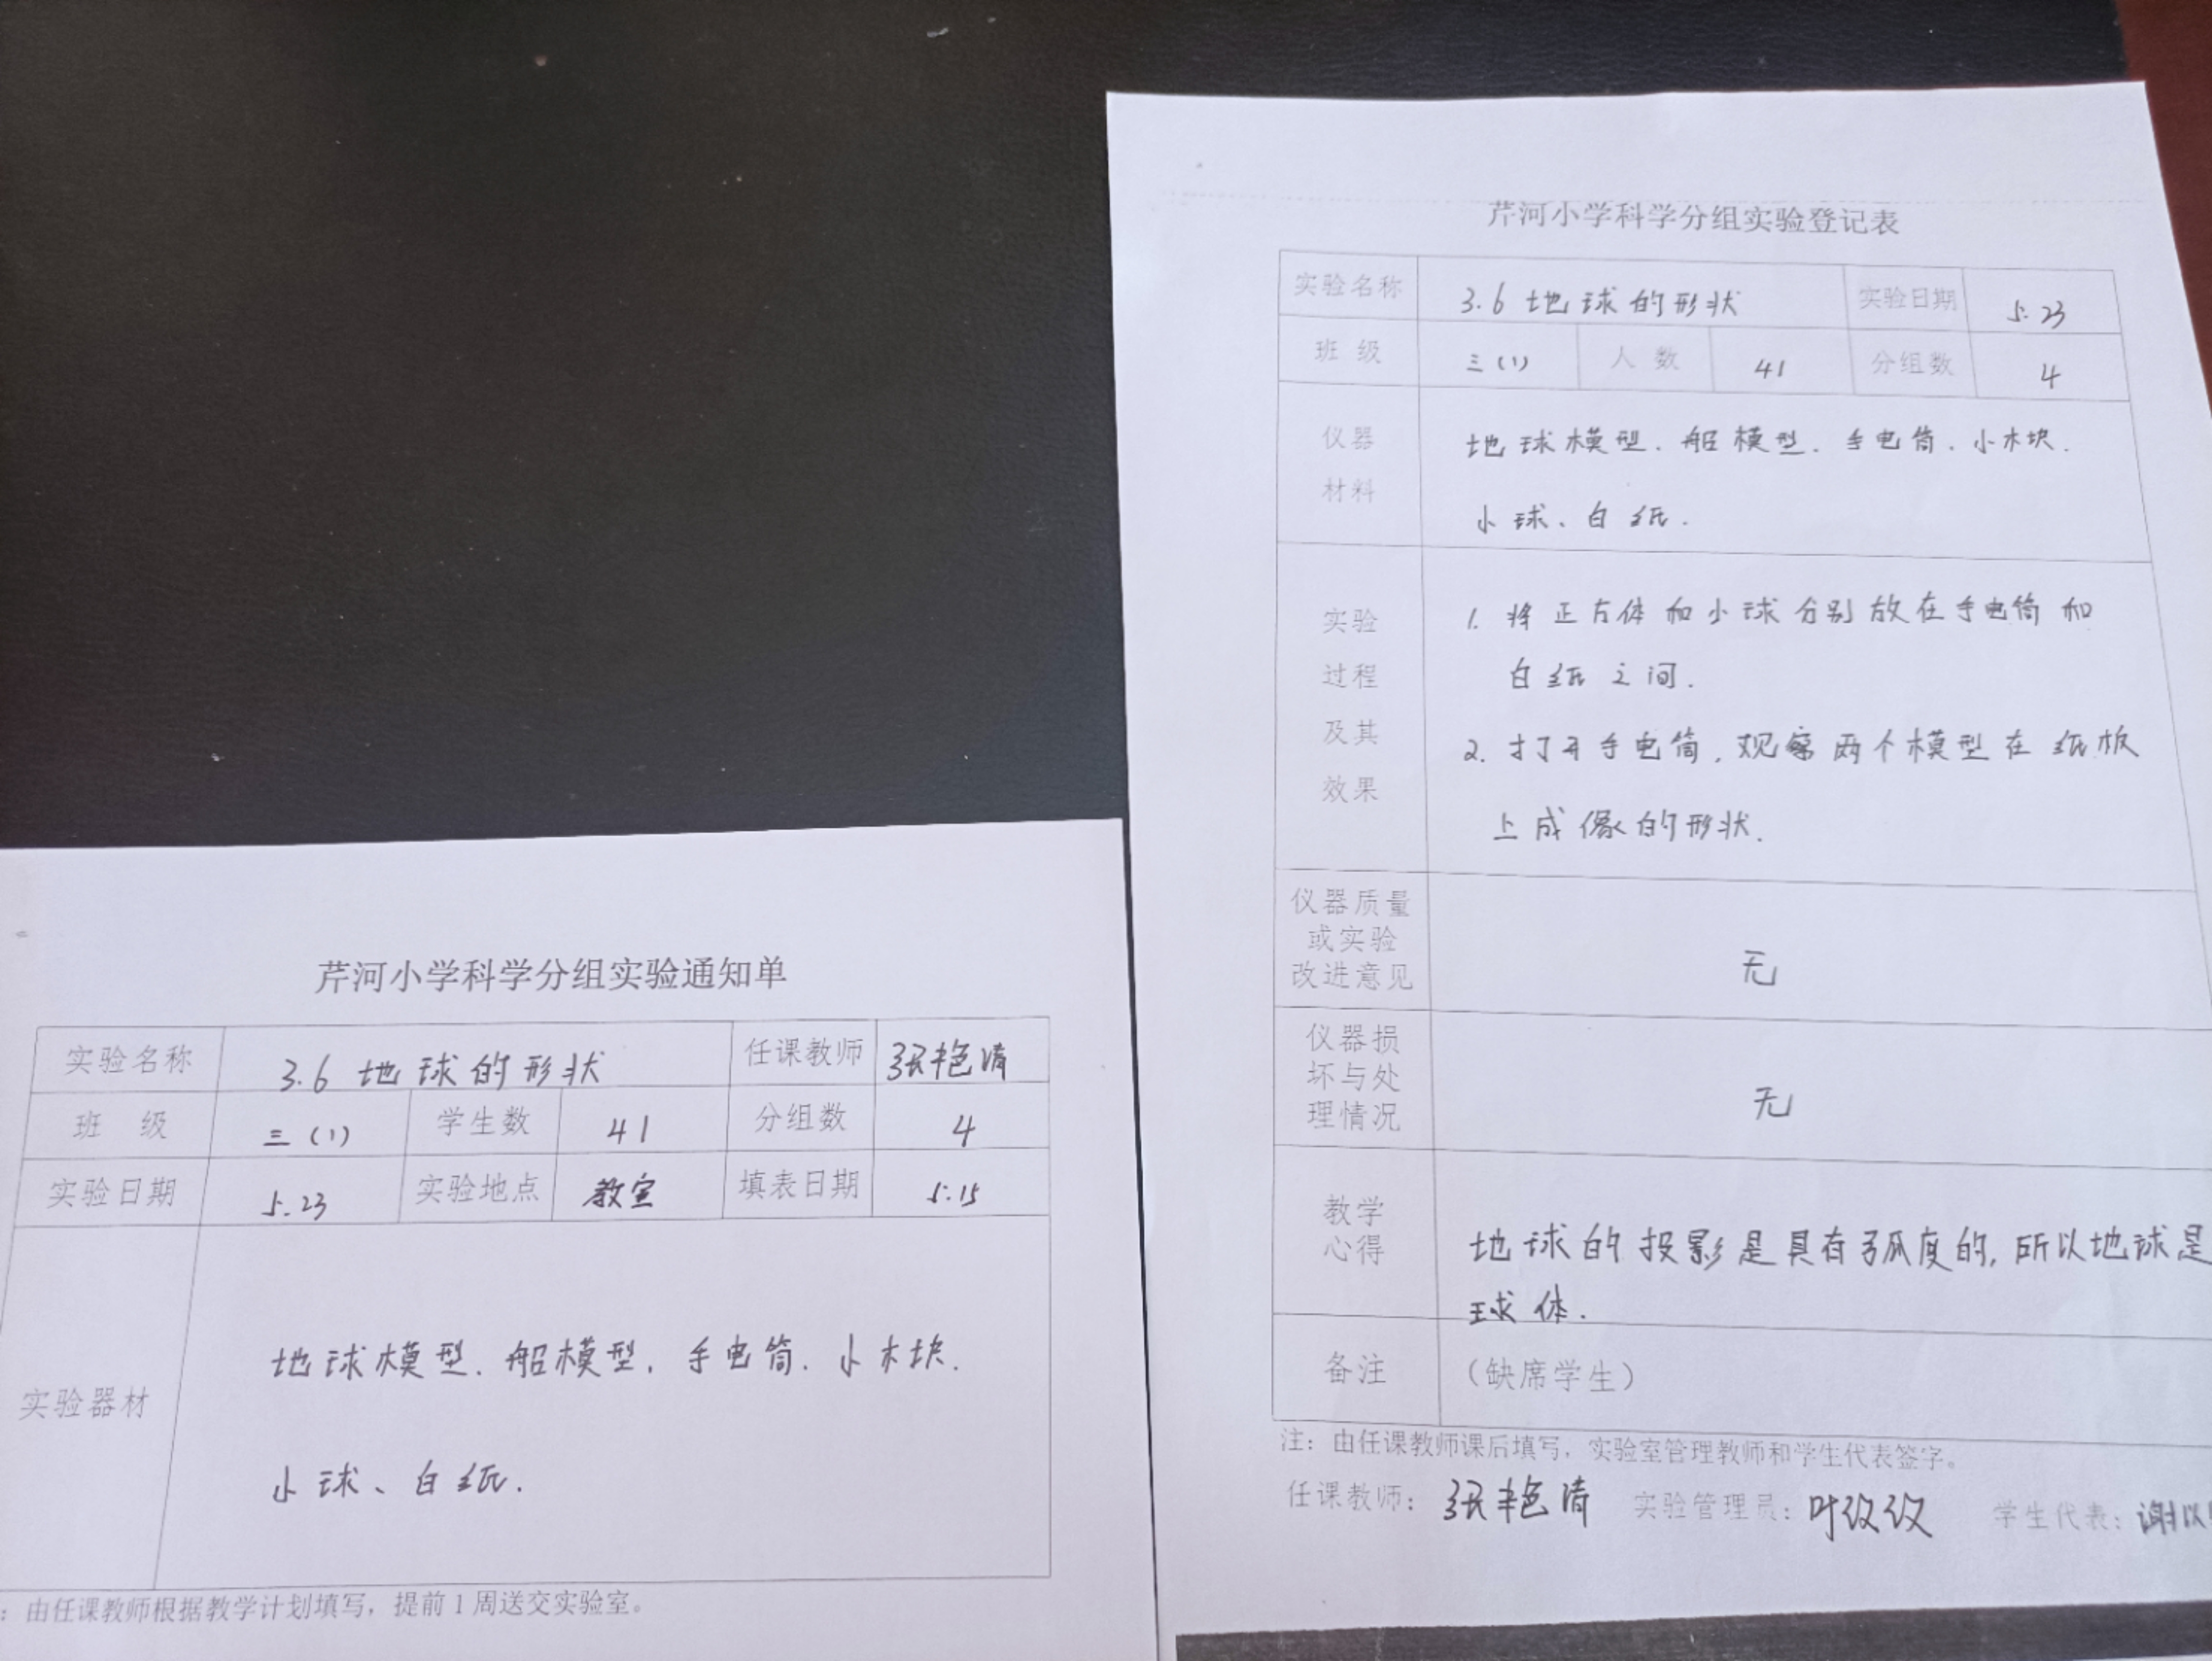 芹河小学科学分组实验通知单
实验名称 3.6 地球的形状 任课教师 张艳清
班 级 三(1) 学生数 41 分组数 4
实验日期 5.23 实验地点 教室 填表日期 5.15
实验器材
地球模型、船模型、手电筒、小木块、
小球、白纸.
：由任课教师根据教学计划填写，提前1周送交实验室。
芹河小学科学分组实验登记表
实验名称 3.6 地球的形状 实验日期 5.23
班 级 三(1) 人 数 41 分组数 4
仪器
材料
地球模型、船模型、手电筒、小木块、
小球、白纸.
实验
过程
及其
效果
1. 将正方体和小球分别放在手电筒和
白纸之间.
2. 打开手电筒,观察两个模型在纸板
上成像的形状.
仪器质量
或实验
改进意见
无
仪器损
坏与处
理情况
无
教学
心得
地球的投影是具有弧度的,所以地球是
球体.
备注 （缺席学生）
注：由任课教师课后填写，实验室管理教师和学生代表签字。
任课教师：张艳清 实验管理员：叶议议 学生代表：谢以